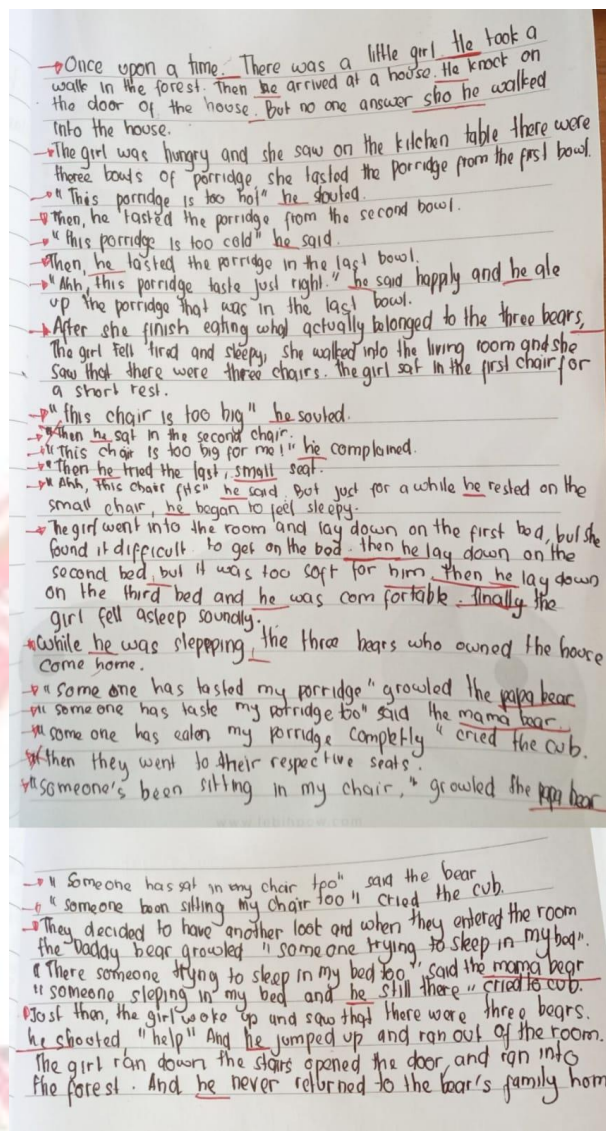 Once upon a time. There was a little girl. He took a
walk in the forest. Then he arrived at a house. He knock on
the door of the house. But no one answer sho he walked
into the house.
The girl was hungry and she saw on the kitchen table there were
theree bowls of porridge she tasted the porridge from the first bowl.
"This porridge is too hot" he shouted.
Then, he tasted the porridge from the second bowl.
"this porridge is too cold" he said.
Then, he tasted the porridge in the last bowl.
"Ahh, this porridge taste just right." he said happly and he ate
up the porridge that was in the last bowl.
After she finish eating what actually bolonged to the three bears,
The girl fell tired and sleepy, she walked into the living room and she
saw that there were three chairs. the girl sat in the first chair for
a short rest.
"this chair is too big" he souted.
Then he sat in the second chair.
"This chair is too big for me!" he complained.
Then he tried the last, small seat.
"Ahh, this chair fits" he said. But just for a while he rested on the
small chair, he began to feel sleepy.
The girl went into the room and lay down on the first bed, but she
found it difficult to get on the bed. then he lay down on the
second bed, but it was too soft for him. Then he lay down
on the third bed and he was comfortable. finally the
girl fell asleep soundly.
while he was slepping, the three bears who owned the house
come home.
"some one has tasted my porridge" growled the papa bear
"someone has taste my porridge too" said the mama bear.
"some one has eaten my porridge completly" cried the cub.
then they went to their respective seats.
"someone's been sitting in my chair," growled the papa bear
"Someone has sat in my chair too" said the bear
"someone been sitting my chair too" cried the cub.
They decided to have another look and when they entered the room
the Daddy bear growled "someone trying to sleep in my bed".
"There someone tryng to sleep in my bed too" said the mama bear
"someone sleping in my bed and he still there" cried to cub.
Just then, the girl woke up and saw that there were three bears.
he shooted "help" And he jumped up and ran out of the room.
The girl ran down the stairs opened the door, and ran into
the forest. And he never returned to the bear's family hom